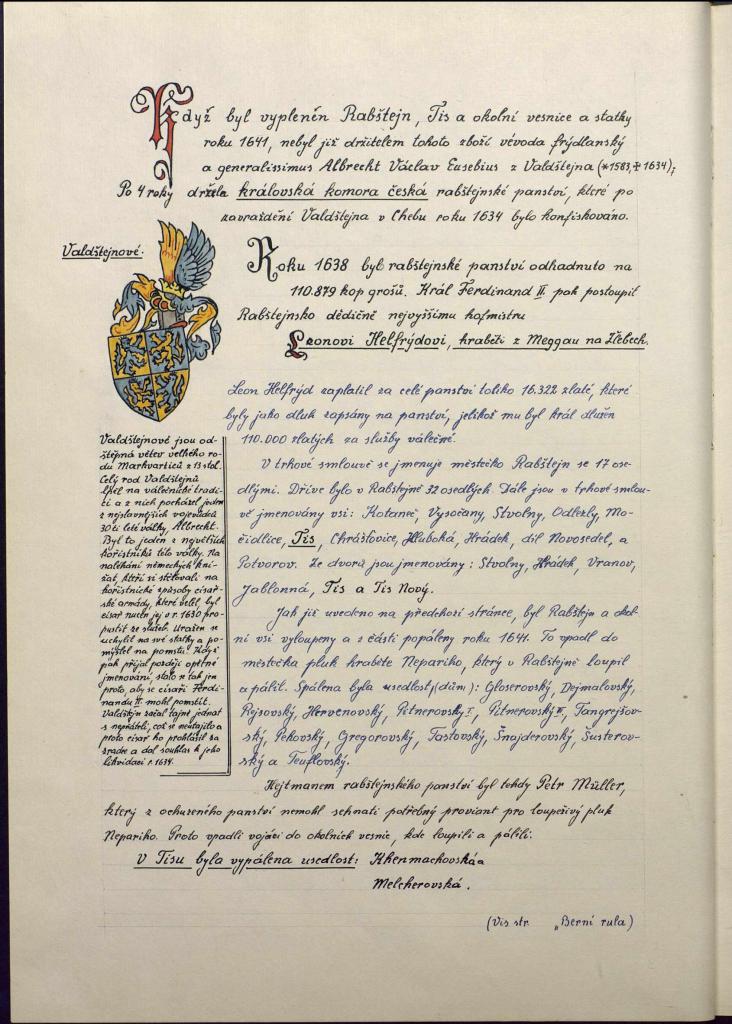 Když byl vypleněn Rabštejn, Tis a okolní vesnice a statky
roku 1641, nebyl již držitelem tohoto zboží vévoda frýdlanský
a generalissimus Albrecht Václav Eusebius z Valdštejna (*1583, ‡1634);
Po 4 roky držela královská komora česká rabštejnské panství, které po
zavraždění Valdštejna v Chebu roku 1634 bylo konfiskováno.
Valdštejnové.
Roku 1638 byl rabštejnské panství odhadnuto na
110.879 kop grošů. Král Ferdinand II. pak postoupil
Rabštejnsko dědičně nejvyššímu hofmistru
Leonovi Helfrýdovi, hraběti z Meggau na Žlebech.
Leon Helfrýd zaplatil za celé panství toliko 16.322 zlaté, které
byly jako dluh zapsány na panství, jelikož mu byl král dlužen
110.000 zlatých za služby válečné.
V trhové smlouvě se jmenuje městečko Rabštejn se 17 ose-
dlými. Dříve bylo v Rabštejně 32 osedlých. Dále jsou v trhové smlou-
vě jmenovány vsi: Kotaneč, Vysočany, Stvolny, Odlezly, Mo-
čidlice, Tis, Chrášťovice, Hluboká, Hrádek, díl Novosedel, a
Potvorov. Ze dvorů jsou jmenovány: Stvolny, Hrádek, Vranov,
Jablonná, Tis a Tis Nový.
Jak již uvedeno na předchozí stránce, byl Rabštejn a okol-
ní vsi vyloupeny a z části popáleny roku 1641. To vpadl do
městečka pluk hraběte Nepariho, který v Rabštejně loupil
a pálil. Spálena byla usedlost, (dům): Gloserovský, Dejmalovský,
Rejsovský, Hervenovský, Pitnerovský I, Pitnerovský II, Tangrejšov-
ský, Pekovský, Gregorovský, Tastovský, Šnajderovský, Šusterov-
ský a Teuflovský.
Valdštejnové jsou od-
štěpná větev velkého ro-
du Markvarticů z 13 stol.
Celý rod Valdštejnů
lpěl na válečnické tradi-
ci a z nich pocházel jeden
z nejslavnějších vojevůdců
30 ti leté války, Albrecht.
Byl to jeden z největších
kořistníků této války. Na
naléhání německých kní-
žat, kteří si stěžovali na
kořistnické způsoby císař-
ské armády, které velel, byl
císař nucen jej v r. 1630 pro-
pustit ze služeb. Uražen se
uchýlil na své statky a po-
mýšlel na pomstu. Když
pak přijal později opětné
jmenování, stalo se tak jen
proto, aby se císaři Ferdi-
nandu II. mohl pomstít.
Valdštejn začal tajně jednat
s nepřáteli, což se neutajilo a
proto císař ho prohlásil za
zrádce a dal souhlas k jeho
likvidaci r. 1634.
Hejtmanem rabštejnského panství byl tehdy Petr Müller,
který z ochuzeného panství nemohl sehnati potřebný proviant pro loupeživý pluk
Nepariho. Proto vpadli vojáci do okolních vesnic, kde loupili a pálili.
V Tisu byla vypálena usedlost: Khenmachovská a
Melcherovská.
(Viz str. „Berní rula)